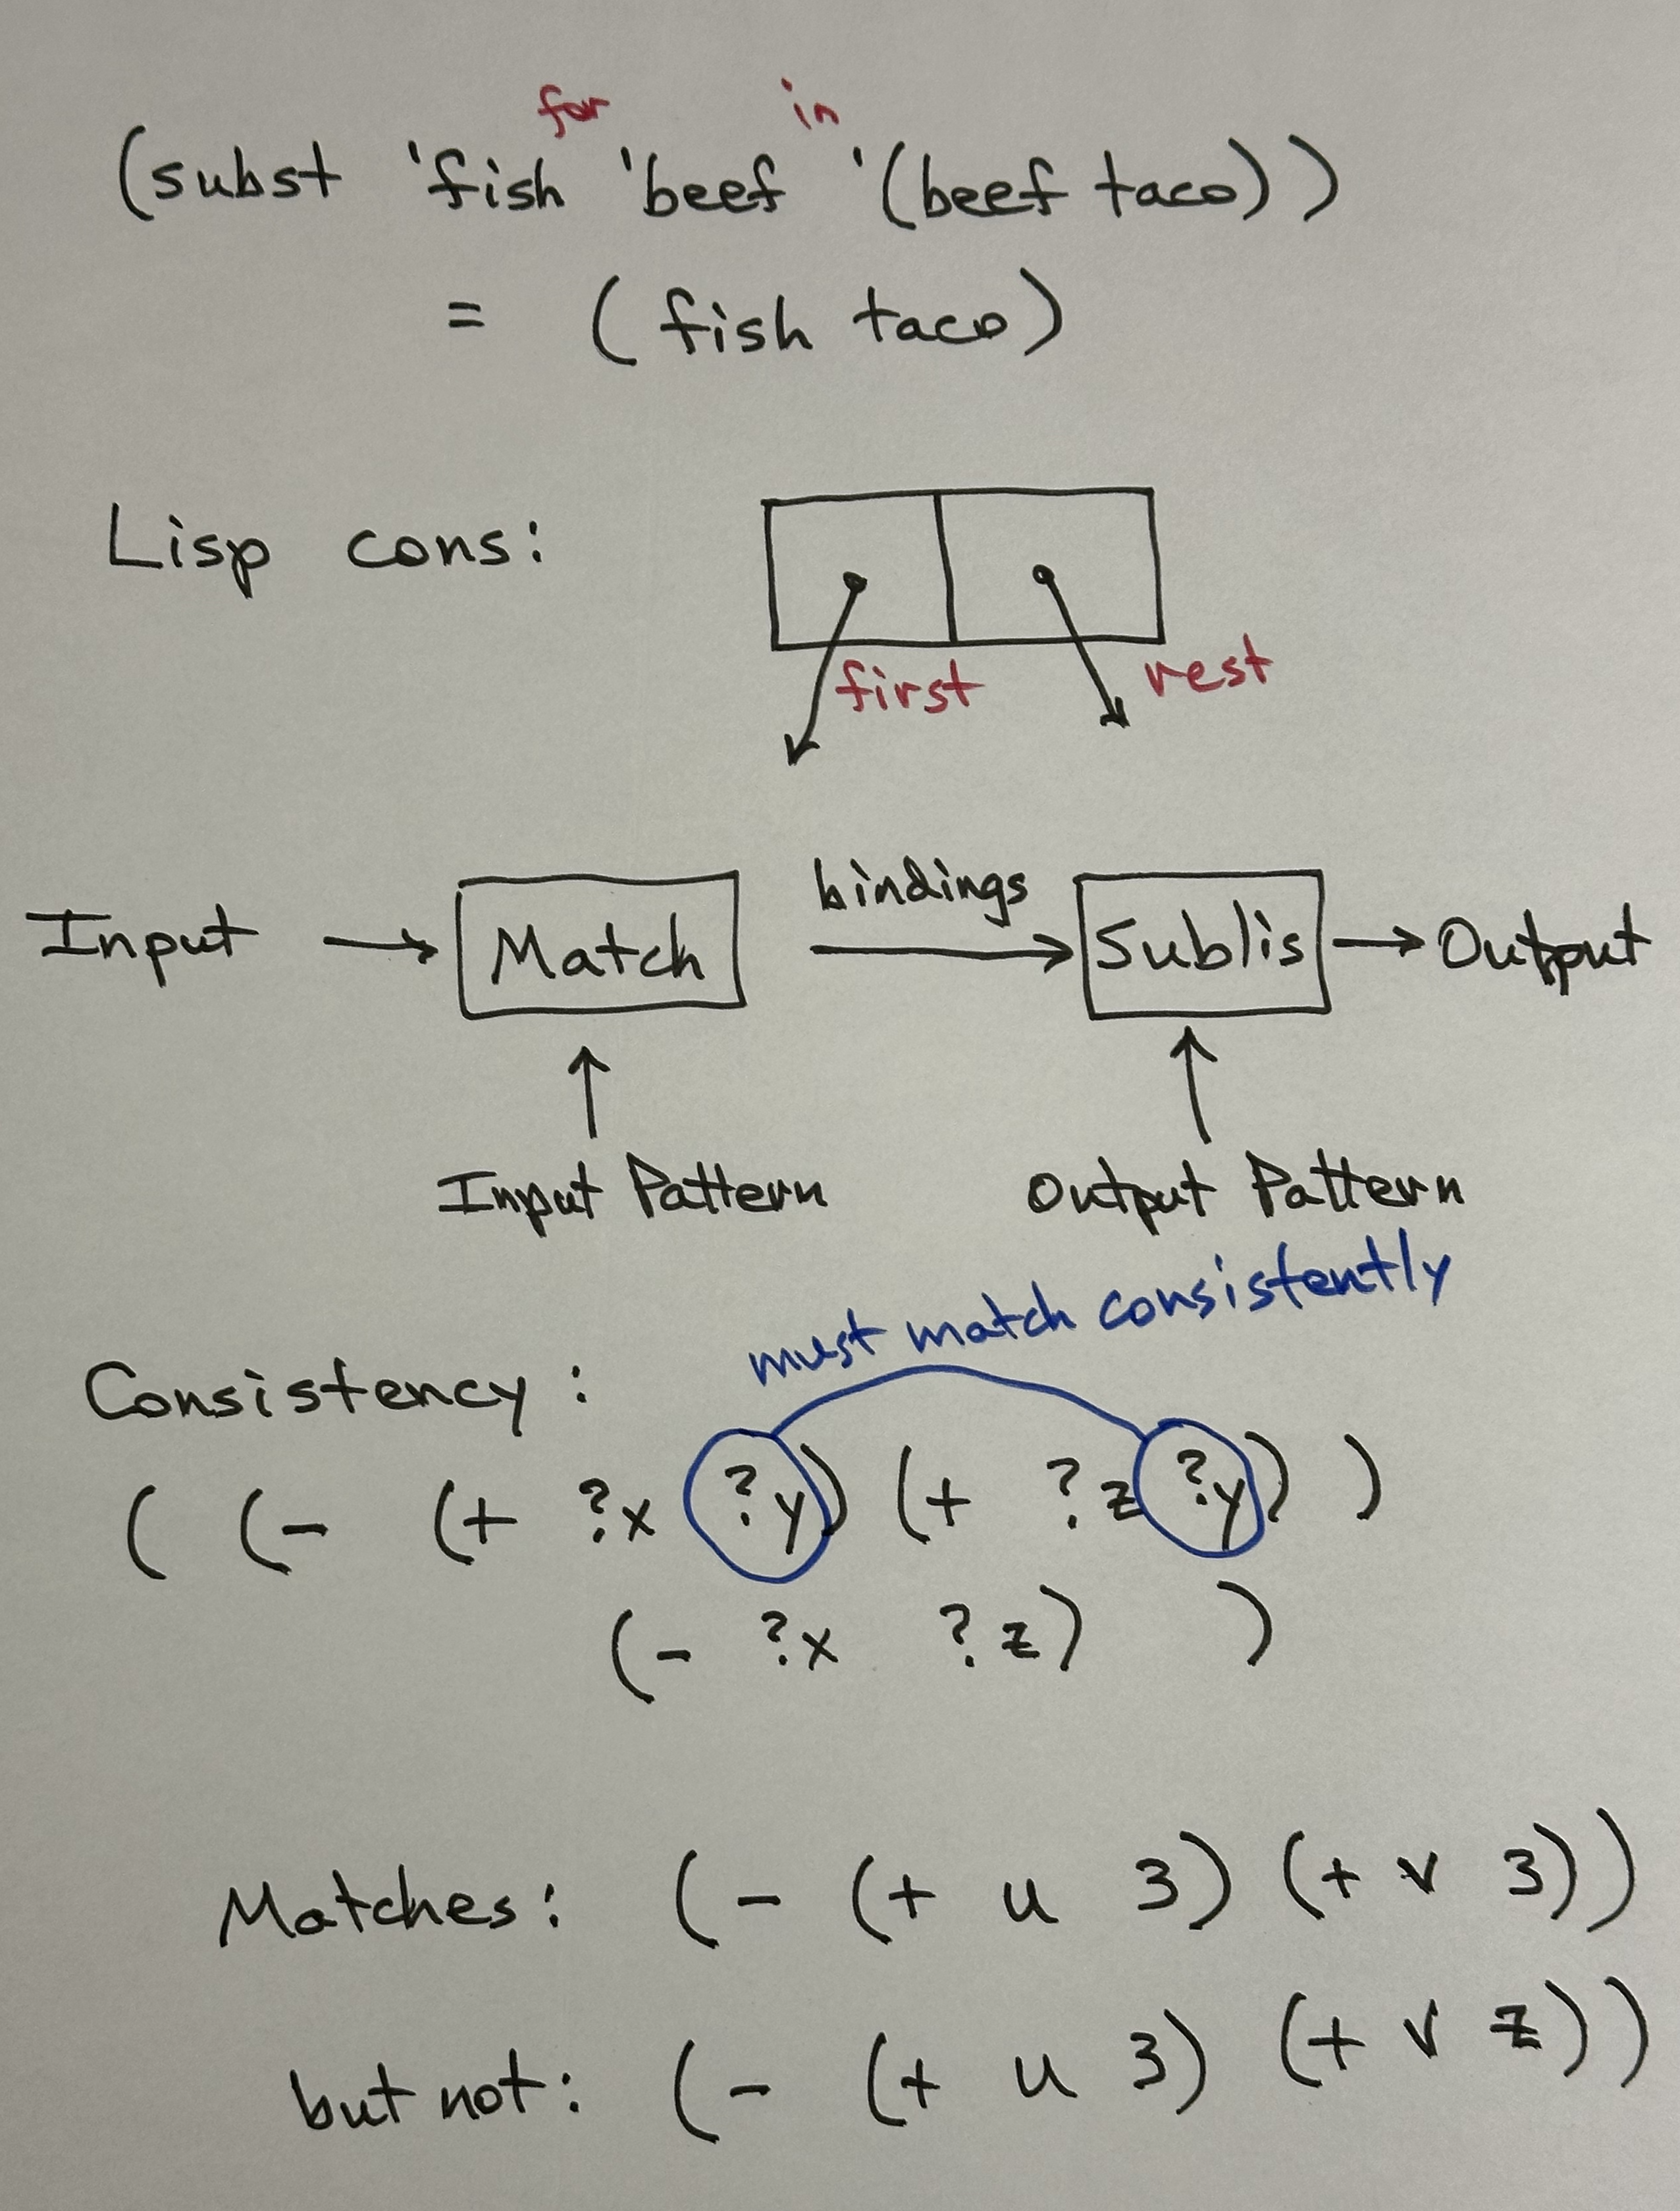 for in
(subst 'fish 'beef '(beef taco))
= (fish taco)
Lisp cons:
first rest
bindings
Input → Match → Sublis → Output
Input Pattern Output Pattern
must match consistently
Consistency:
( (- (+ ?x ?y) (+ ?z ?y) )
(- ?x ?z) )
Matches: (- (+ u 3) (+ v 3))
but not: (- (+ u 3) (+ v z))